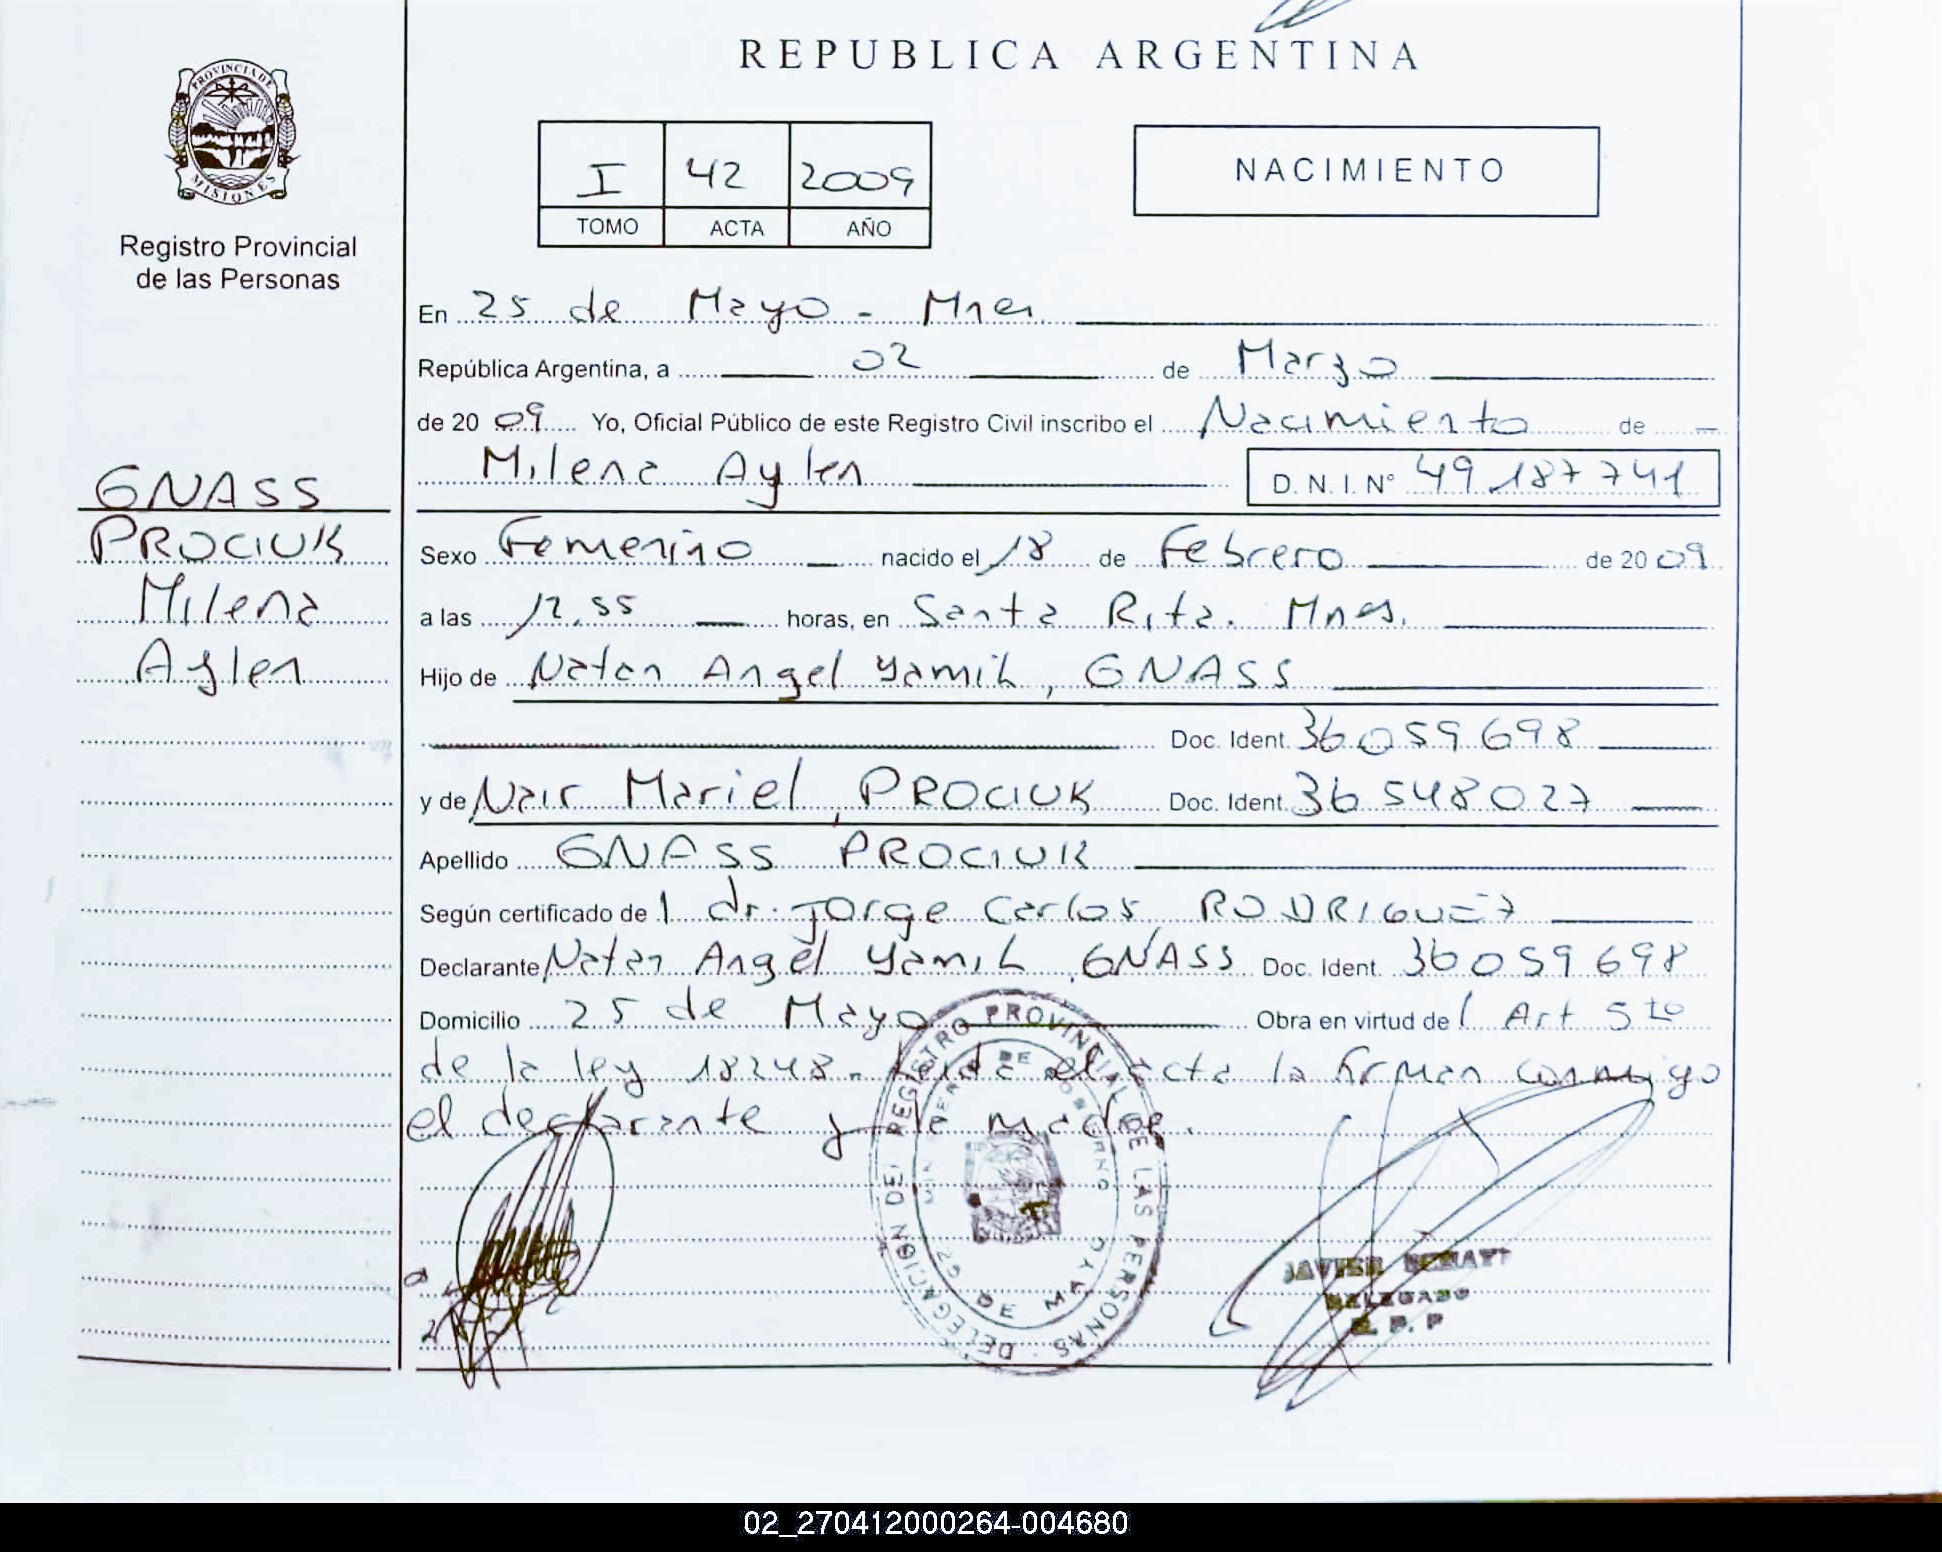 REPUBLICA ARGENTINA
PROVINCIA DE
MISIONES
Registro Provincial
de las Personas
I 42 2009
TOMO ACTA AÑO
NACIMIENTO
En 25 de Mayo - Mnes.
República Argentina, a 02 de Marzo
de 20 09 Yo, Oficial Público de este Registro Civil inscribo el Nacimiento de
Milena Aylen D. N. I. N° 49.187741
GNASS
PROCIUK
Milena
Aylen
Sexo Femenino nacido el 18 de Febrero de 20 09
a las 12.55 horas, en Santa Rita. Mnes.
Hijo de Natan Angel Yamih, GNASS
Doc. Ident. 36059698
y de Nair Mariel, PROCIUK Doc. Ident. 36548027
Apellido GNASS PROCIUK
Según certificado de l dr. Jorge Carlos RODRIGUEZ
Declarante Natan Angel Yamih, GNASS Doc. Ident. 36059698
Domicilio 25 de Mayo Obra en virtud de l Art 5to
de la ley 18248. Leida el acta la firman conmigo
el declarante y la madre.
DELEGACION DEL REGISTRO PROVINCIAL DE LAS PERSONAS
DE GOBIERNO
25 DE MAYO
JAVIER
DELEGADO
R. P. P
02_270412000264-004680